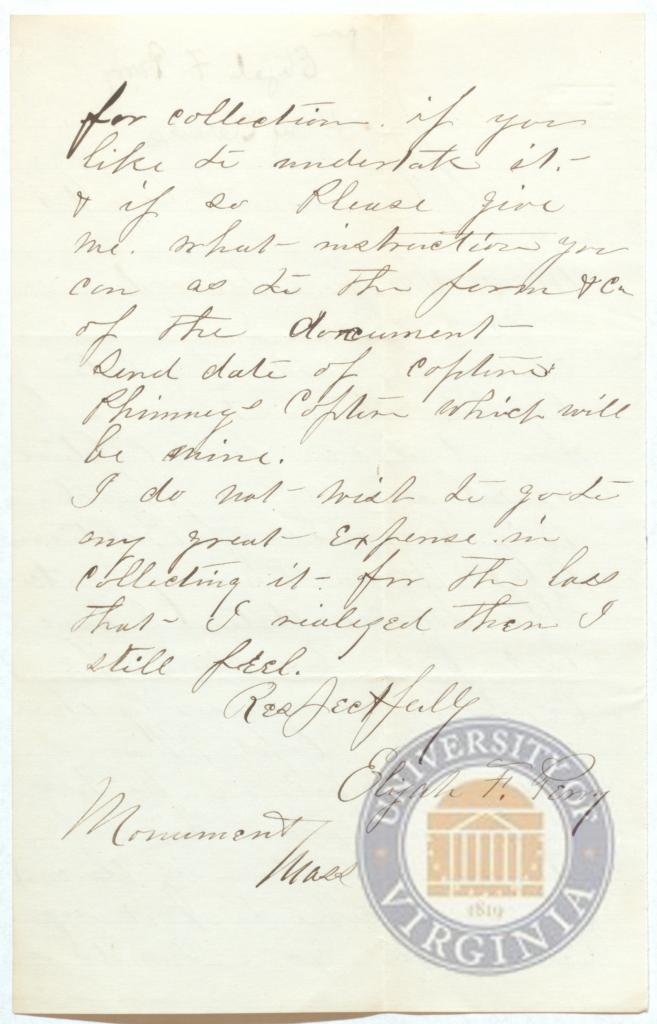 for collection. if you
like to undertak it.-
& if so Please give
me. what instruction you
can as to the form & C
of the document
Send date of
Phinneys which will
be mine.
I do not wish to go to
any great Expense. in
collecting it - for the loss
that - I realized then I
still feel.
Respectfully
Elijah F. Perry
Monument
Mass
UNIVERSITY OF VIRGINIA
1819